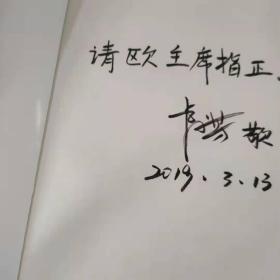 请欧主席指正.
敬
2019.3.13